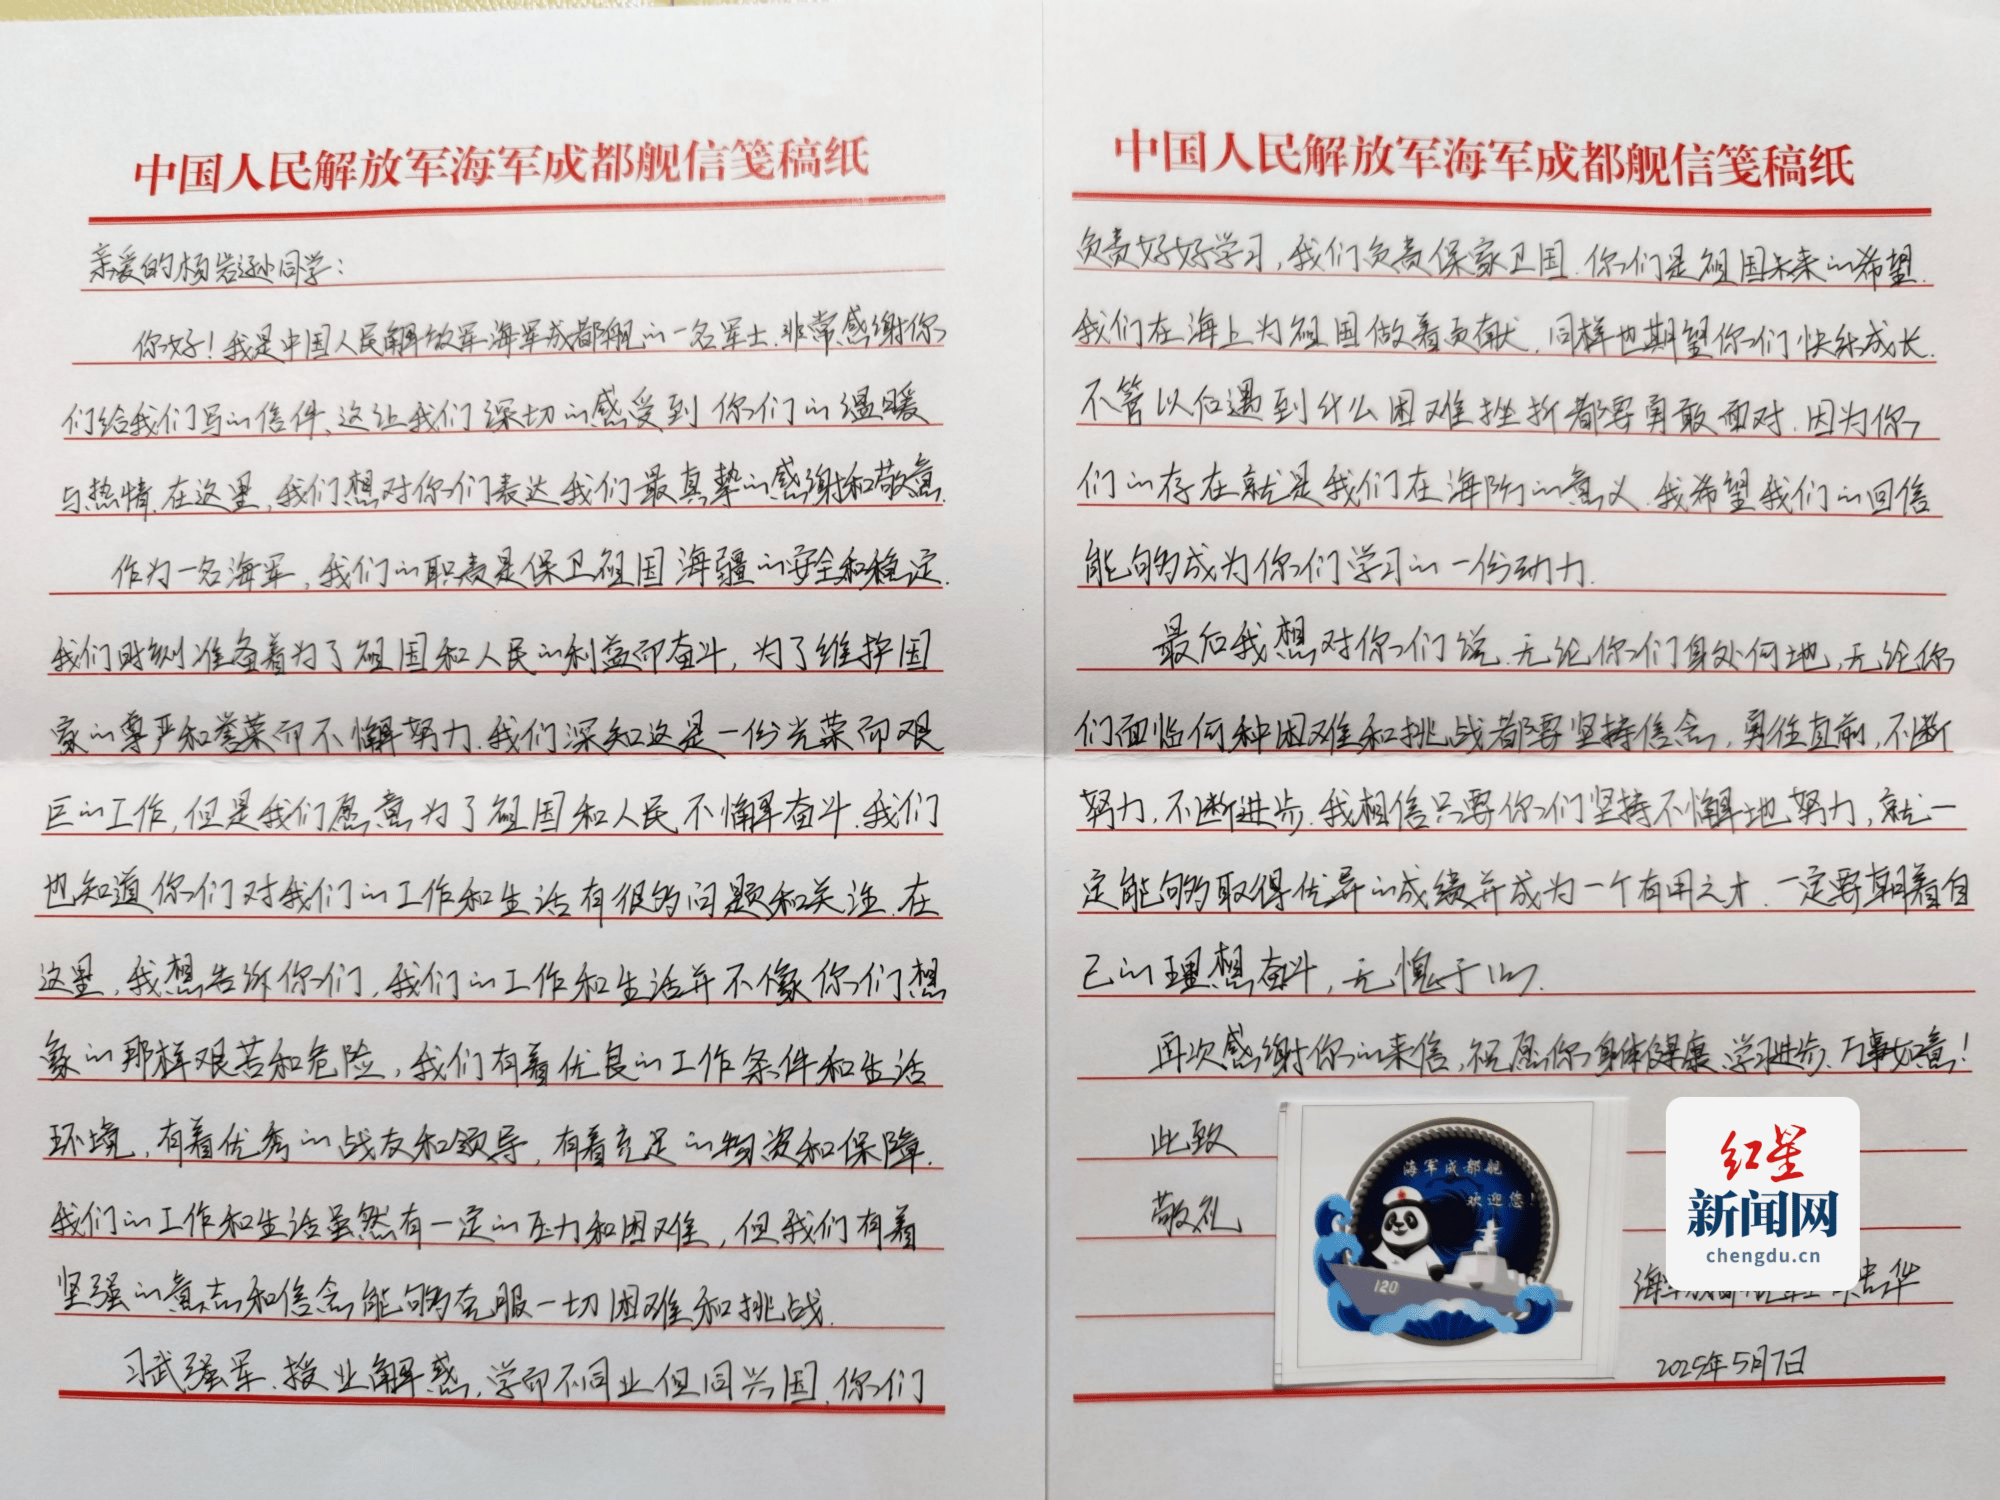 中国人民解放军海军成都舰信笺稿纸
亲爱的杨岩逊同学：
你好！我是中国人民解放军海军成都舰的一名军士.非常感谢你
们给我们写的信件、这让我们深切的感受到你们的温暖
与热情.在这里，我们想对你们表达我们最真挚的感谢和敬意.
作为一名海军，我们的职责是保卫祖国海疆的安全和稳定.
我们时刻准备着为了祖国和人民的利益而奋斗，为了维护国
家的尊严和荣誉而不懈努力.我们深知这是一份光荣而艰
巨的工作，但是我们愿意为了祖国和人民不懈奋斗.我们
也知道你们对我们的工作和生活有很多问题和关注.在
这里，我想告诉你们，我们的工作和生活并不像你们想
象的那样艰苦和危险，我们有着优良的工作条件和生活
环境，有着优秀的战友和领导，有着充足的物资和保障.
我们的工作和生活虽然有一定的压力和困难，但我们有着
坚强的意志和信念能够克服一切困难和挑战.
习武强军.授业解惑，学而不同业但同兴国.你们
中国人民解放军海军成都舰信笺稿纸
负责好好学习，我们负责保家卫国.你们是祖国未来的希望.
我们在海上为祖国做着贡献.同样也期望你们快乐成长.
不管以后遇到什么困难挫折都要勇敢面对.因为你
们的存在就是我们在海防的意义.我希望我们的回信
能够成为你们学习的一份动力.
最后我想对你们说.无论你们身处何地，无论你
们面临何种困难和挑战都要坚持信念，勇往直前，不断
努力，不断进步.我相信只要你们坚持不懈地努力，就一
定能够取得优异的成绩并成为一个有用之才.一定要朝着自
己的理想奋斗，无愧于心.
再次感谢你的来信，祝愿你身体健康、学习进步、万事如意！
此致
敬礼
海军成都舰
欢迎您！
120
红星
新闻网
chengdu.cn
华
2025年5月7日